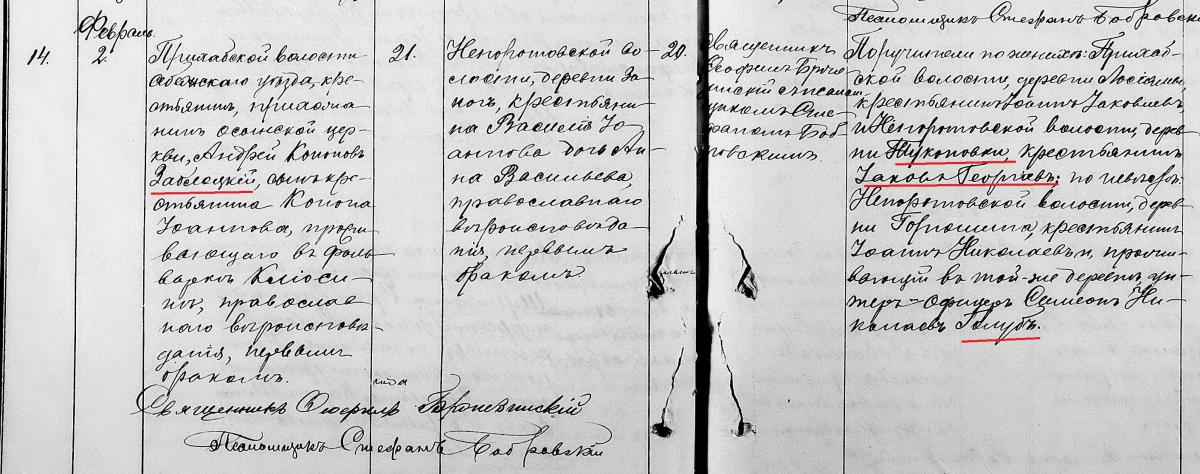 Февраль.
14.
2.
Прихабской волости
себежскаго уѣзда, кре-
стьянинъ, прихожа-
нинъ осынской цер-
кви, Андрей Кононовъ
Заблоцкій, сынъ кре-
стьянина Конона
Іоаннова, прожи-
вающаго въ фоль-
варкѣ
православ-
наго вѣроисповѣ-
данія, первымъ
бракомъ.
21.
Непоротовской во-
лости, деревни За-
ногъ, крестьяни-
на Василія Іо-
аннова дочь Ан-
на Васильева,
православнаго
вѣроисповѣда-
нія, первымъ
бракомъ
20.
Священникъ
Ѳеофилъ
съ псалом-
щикомъ Сте-
фаномъ Боб-
ровскимъ
Псаломщикъ Стефанъ Бобровскій
Поручители по женихѣ: Прихаб-
ской волости, деревни
крестьянинъ Іоаннъ Іаковлевъ
и Непоротовской волости, дерев-
ни крестьянинъ
Іаковъ Георгіевъ; по невѣстѣ:
Непоротовской волости, дерев-
ни крестьянинъ
Іоаннъ Николаевъ и прожи-
вающій въ той-же деревнѣ, ун-
теръ-офицеръ Симеонъ Ни-
колаевъ Голубъ.
Священникъ Ѳеофилъ
Псаломщикъ Стефанъ Бобровскій